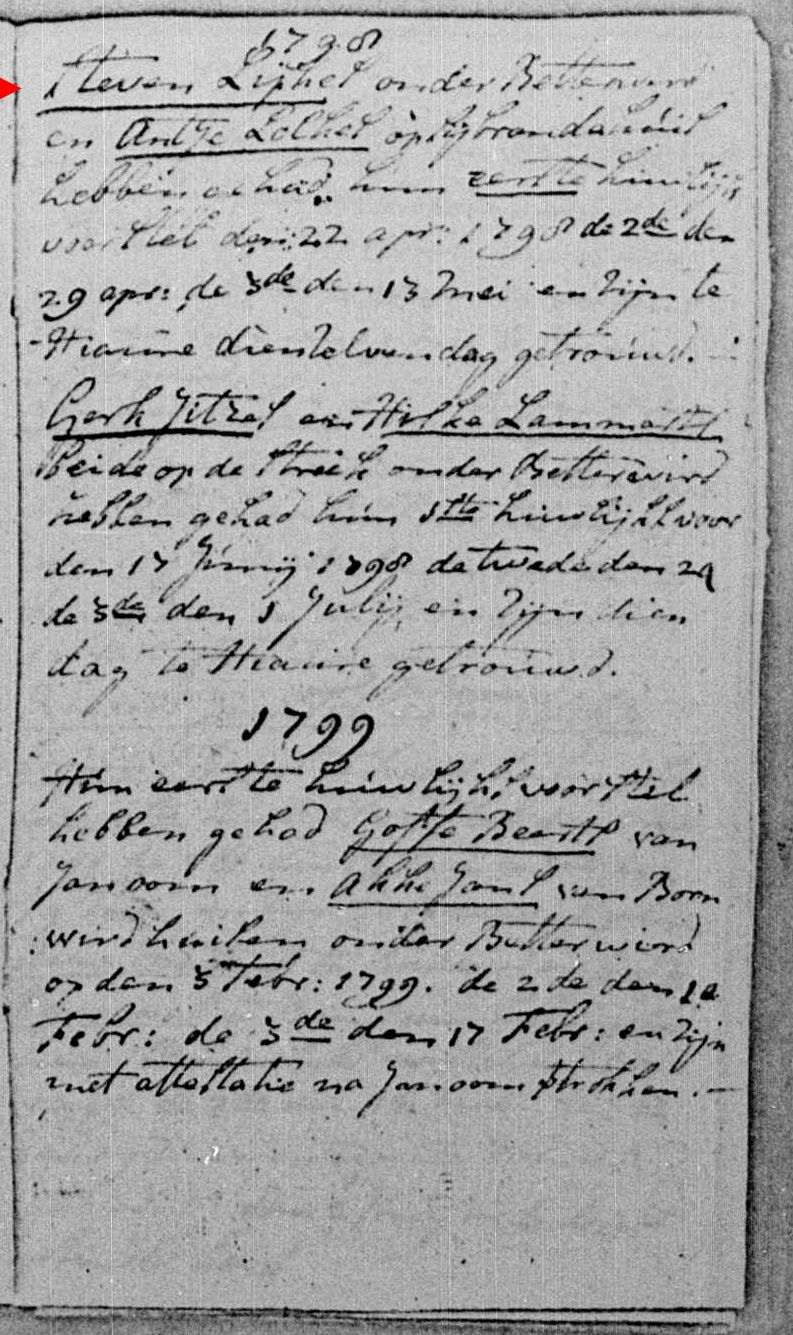 1798
Steven Lijkles onder Betterwird
en Antje Lolkes op Sijbrandahuis
hebben gehad hun eerste huwlijks
voorstel den 22 apr: 1798 de 2de den
29 apr: de 3de den 13 Mei en zijn te
Hiaure dienselven dag getrouwd.
Gerk Jitzes en Hilke Lammerts
Beide op de Streek onder Betterwird
hebben gehad hun 1ste huwlijksvoor
den 17 Junij 1798 de twede den 24
de 3de den 1 Julij en zijn dien
dag te Hiaure getrouwd.
1799
Hun eerste huwlijksvoorstel
hebben gehad Gosse Beerts van
Janoom en Akke Jans van Born
wird huisen onder Betterwird
op den 3 Febr: 1799. de 2de den 10
Febr: de 3de den 17 Febr: en zijn
met attestatie na Janoom vertrokken.